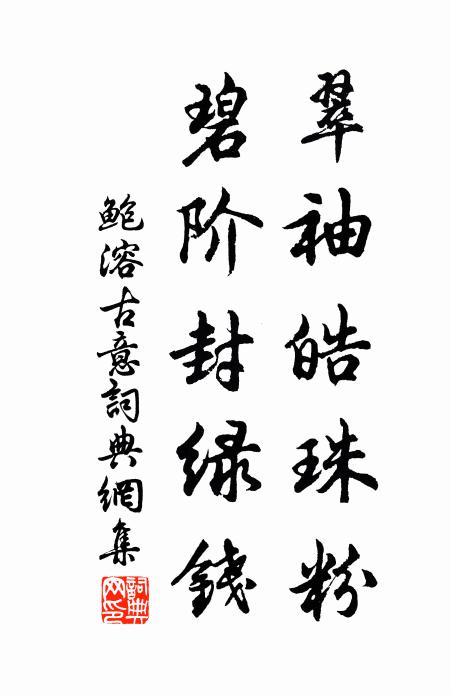 翠袖皓珠粉
碧阶封绿錢
鲍溶古意詞典網集
詞典网印